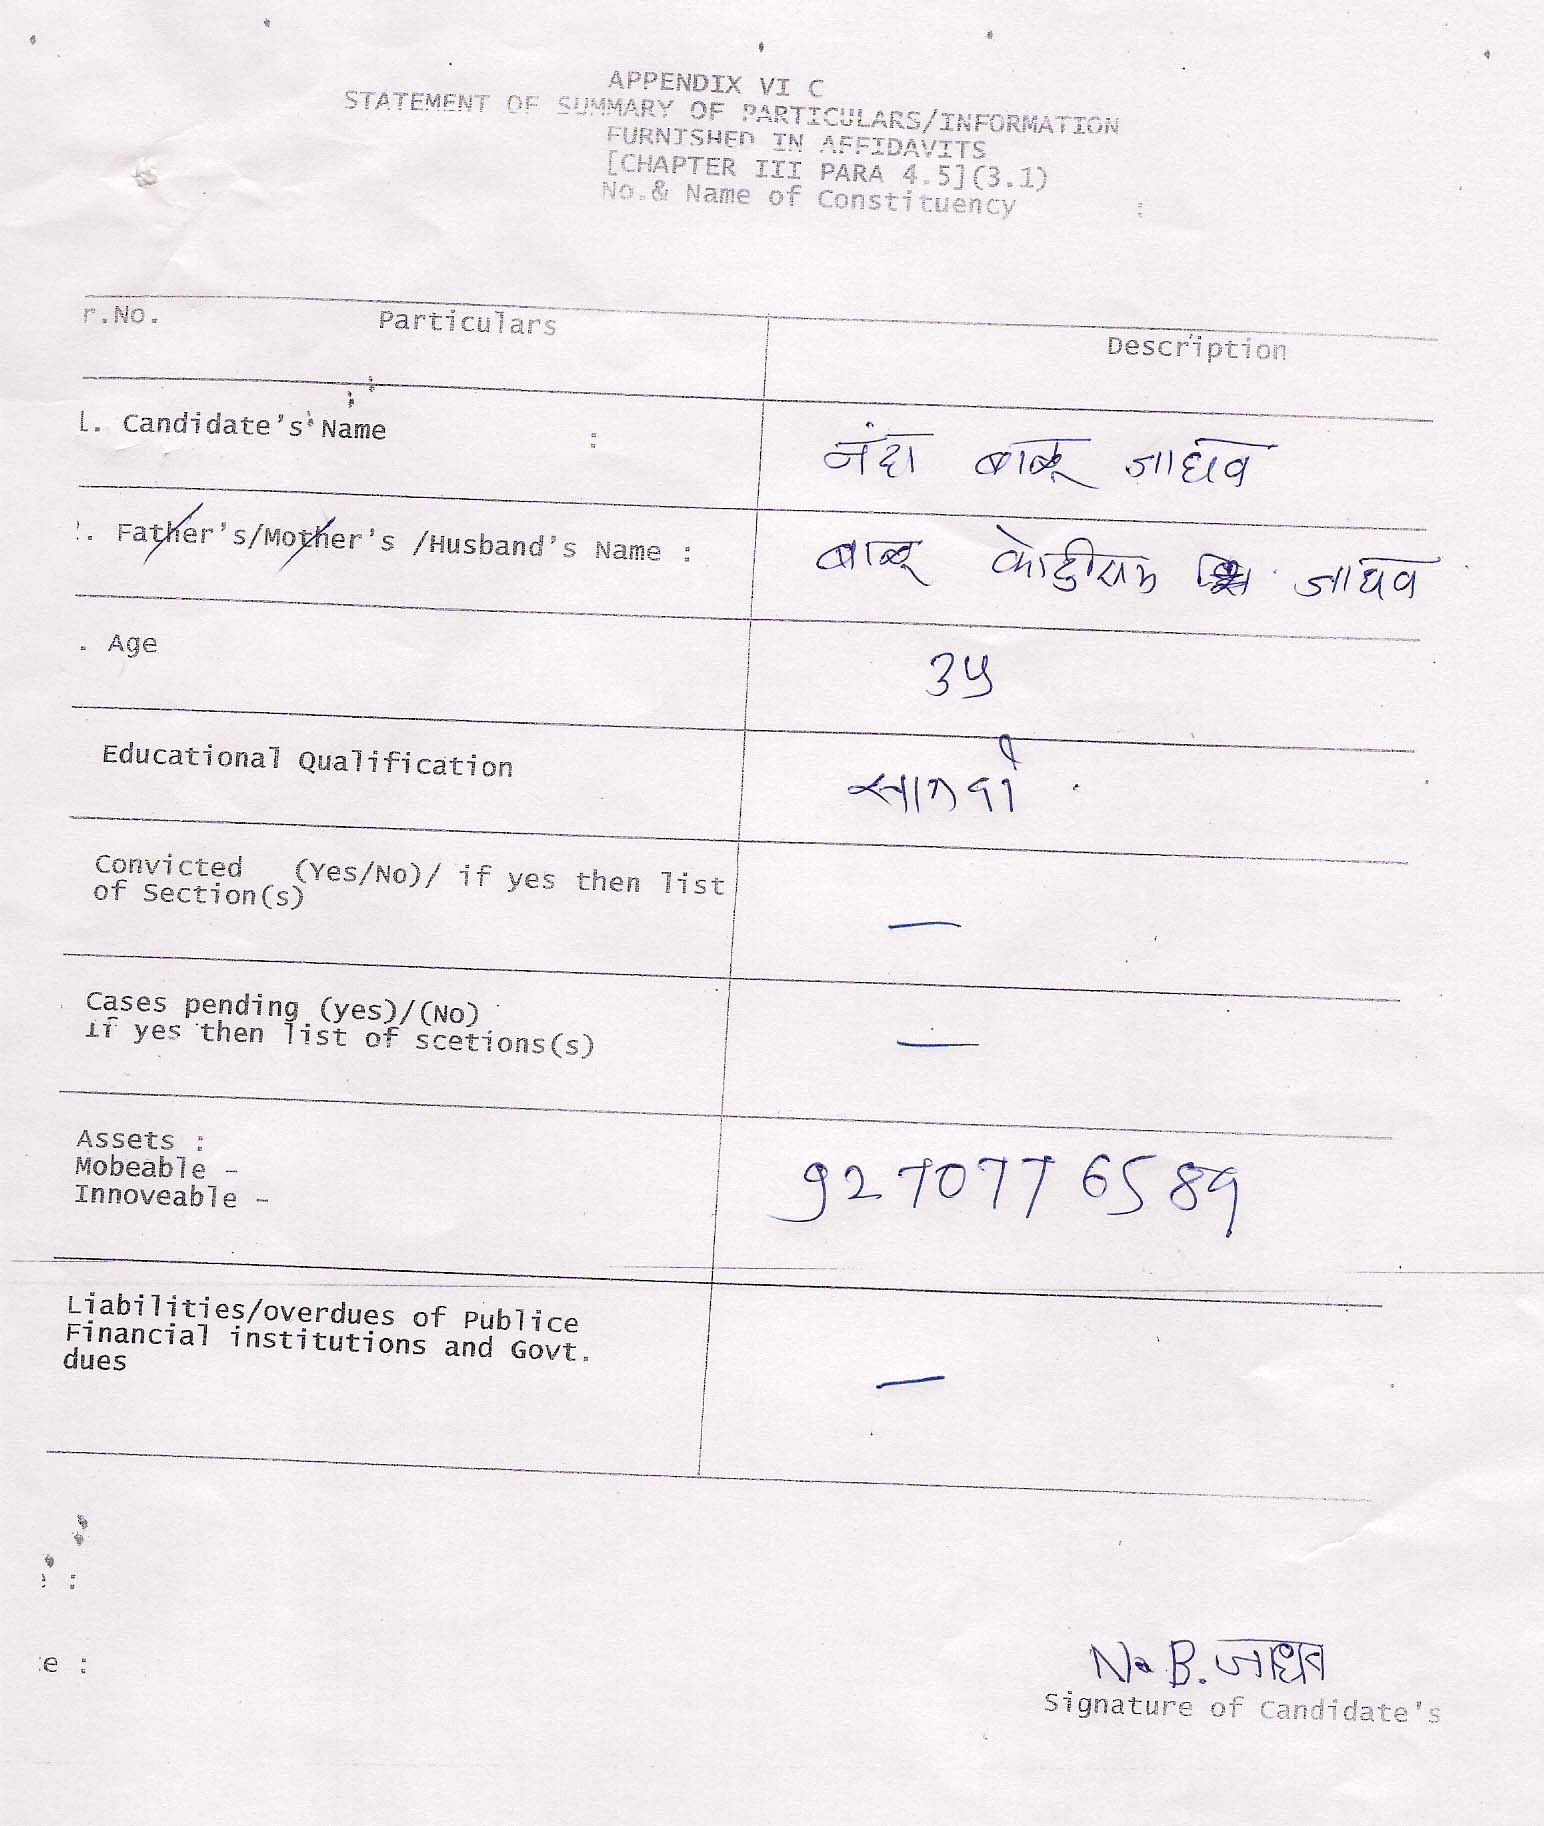 APPENDIX VI C
STATEMENT OF SUMMARY OF PARTICULARS/INFORMATION
FURNISHED IN AFFIDAVITS
[CHAPTER III PARA 4.5](3.1)
No.& Name of Constituency :
r.No. Particulars Description
1. Candidate's Name : नंदा बाळू जाधव
. Father's/Mother's /Husband's Name : बाळू कोंडीराम जाधव
. Age ३५
Educational Qualification सातवी
Convicted (Yes/No)/ if yes then list
of Section(s) —
Cases pending (yes)/(No)
If yes then list of scetions(s) —
Assets :
Mobeable -
Innoveable - 9270776589
Liabilities/overdues of Publice
Financial institutions and Govt.
dues —
:
e :
N. B. जाधव
Signature of Candidate's